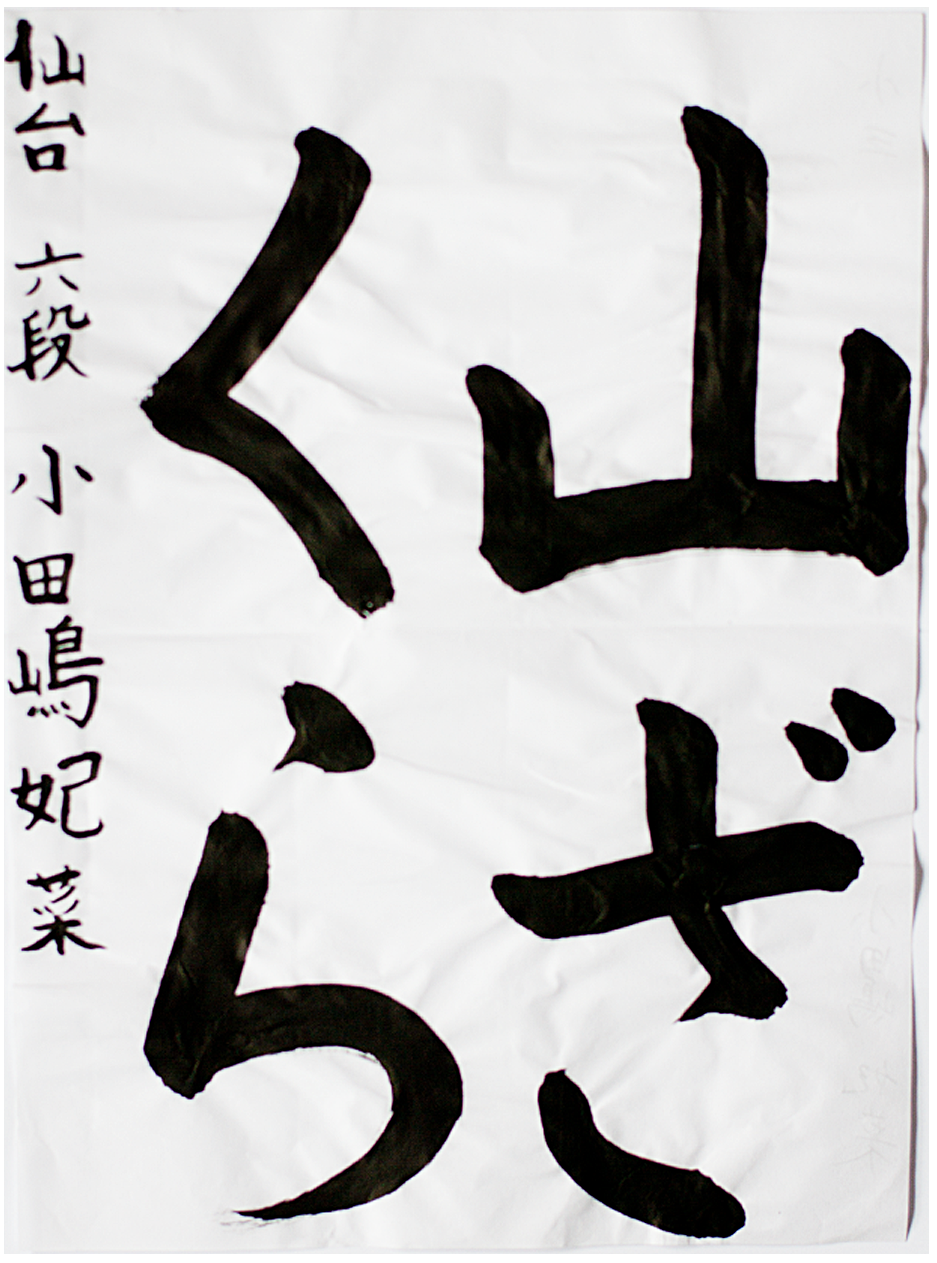 山ざ
くら
仙台 六段 小田嶋妃菜